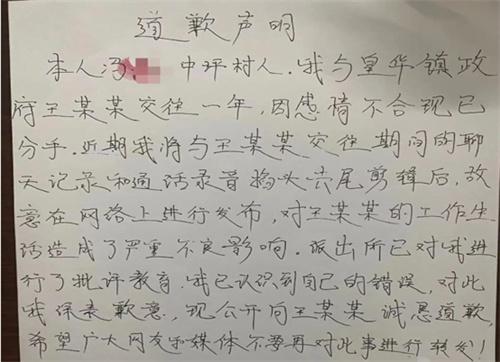 道歉声明
本人冯 中坪村人.我与皇华镇政
府王某某交往一年,因感情不合现已
分手.近期我将与王某某交往期间的聊
天记录和通话录音掐头去尾剪辑后,故
意在网络上进行发布,对王某某的工作生
活造成了严重不良影响.派出所已对我进
行了批评教育,我已认识到自己的错误,对此
我深表歉意,现公开向王某某诚恳道歉,
希望广大网友和媒体不要再对此事进行转发!